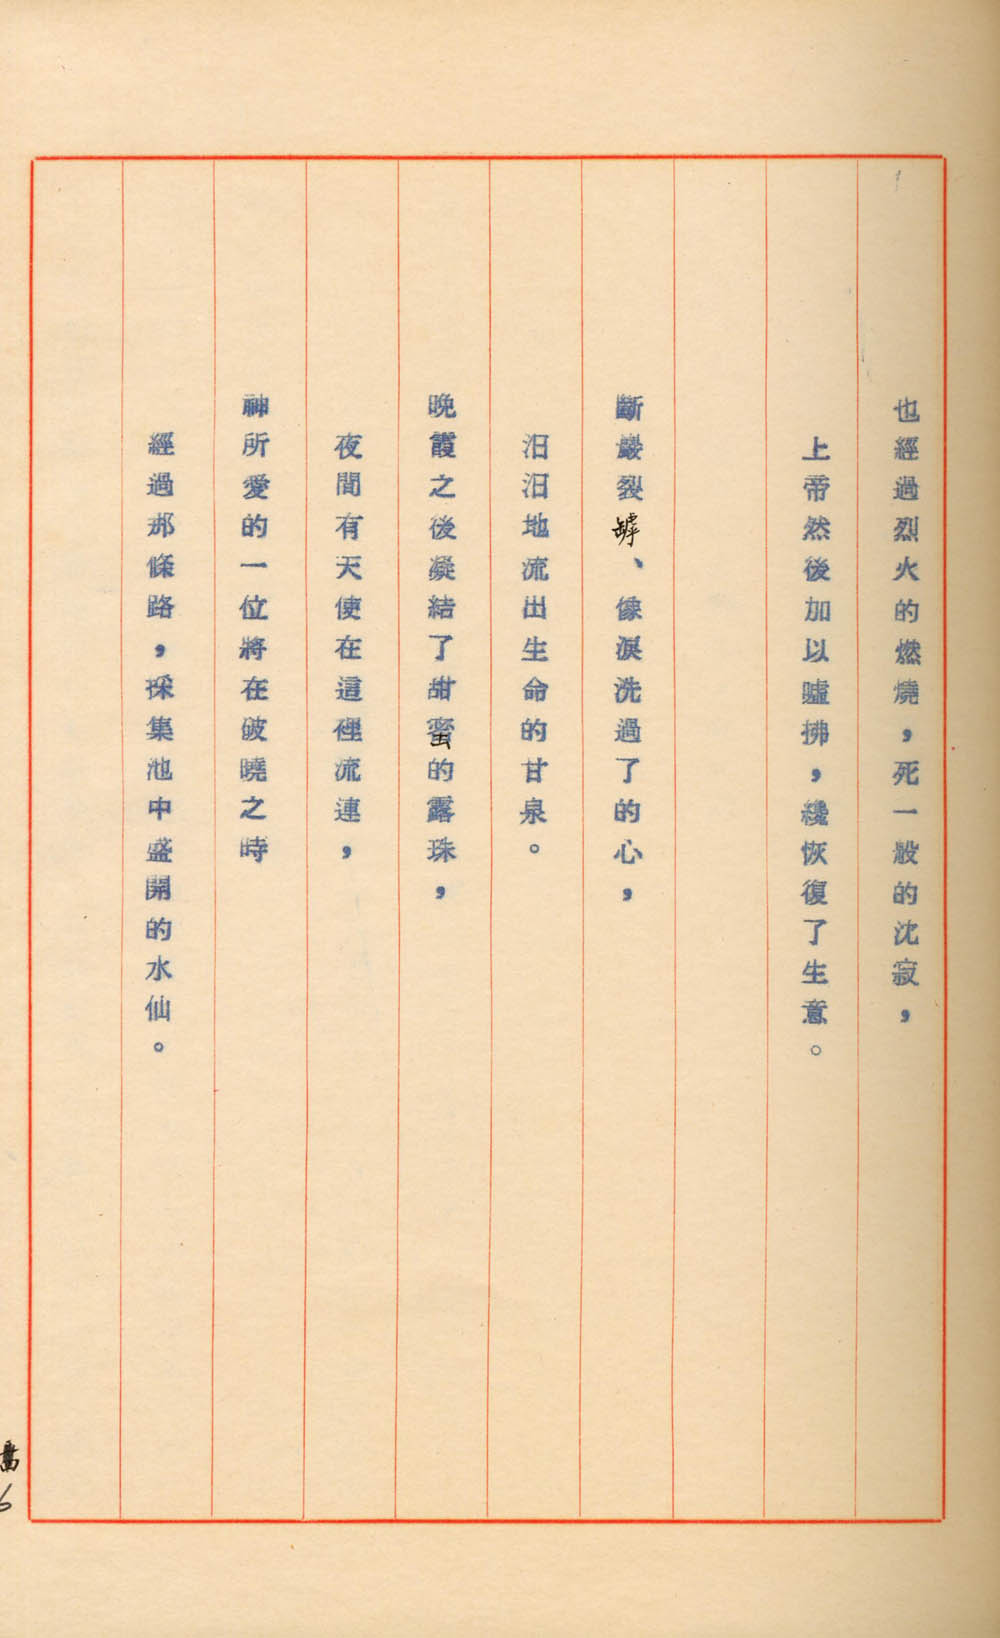 也經過烈火的燃燒，死一般的沈寂，
上帝然後加以噓拂，纔恢復了生意。
斷巖裂罅、像淚洗過了的心，
汩汩地流出生命的甘泉。
晚霞之後凝結了甜蜜的露珠，
夜間有天使在這裡流連，
神所愛的一位將在破曉之時
經過那條路，採集池中盛開的水仙。
6